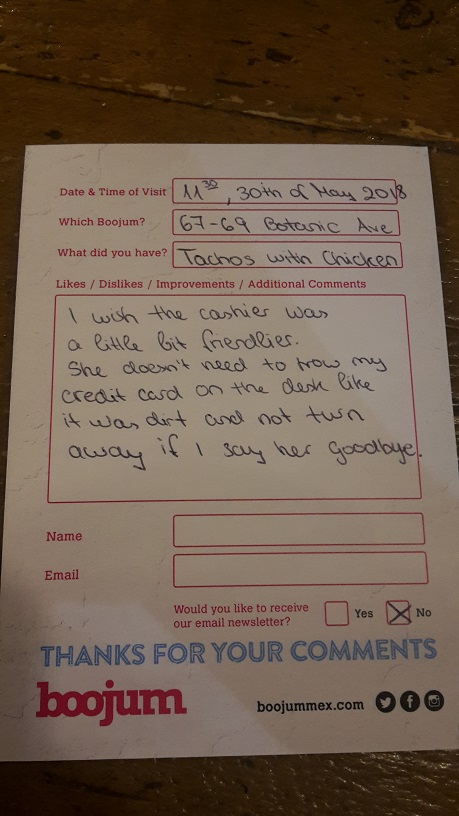 Date & Time of Visit 11 30, 30th of May 2018
Which Boojum? 67-69 Botanic Ave
What did you have? Tachos with Chicken
Likes / Dislikes / Improvements / Additional Comments
I wish the cashier was
a little bit friendlier.
She doesn't need to trow my
credit card on the desk like
it was dirt and not turn
away if I say her goodbye.
Name
Email
Would you like to receive
our email newsletter? Yes No
THANKS FOR YOUR COMMENTS
boojum
boojummex.com